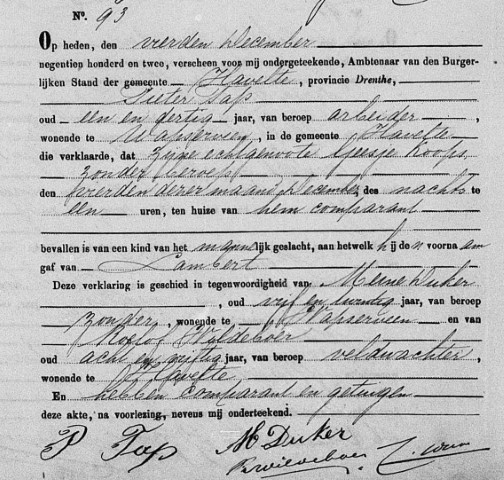 No. 93
Op heden, den vierden December
negentien honderd en twee, verscheen voor mij ondergeteekende, Ambtenaar van den Burger-
lijken Stand der gemeente Havelte, provincie Drenthe,
Pieter Tap
oud een en dertig jaar, van beroep arbeider,
wonende te Wapserveen, in de gemeente Havelte
die verklaarde, dat zijne echtgenoote Geesje Koops,
zonder beroep
den vierden dezer maand December, des nachts
een uren, ten huize van hem comparant
bevallen is van een kind van het mannelijk geslacht, aan hetwelk hij den voornaam
gaf van Lambert
Deze verklaring is geschied in tegenwoordigheid van Meine Duker
, oud vijf en twintig jaar, van beroep
zonder, wonende te Wapserveen en van
Wildeboer
oud acht en vijftig jaar, van beroep veldwachter,
wonende te Havelte
En hebben comparant en getuigen
deze akte, na voorlezing, nevens mij onderteekend.
P Tap M Duker